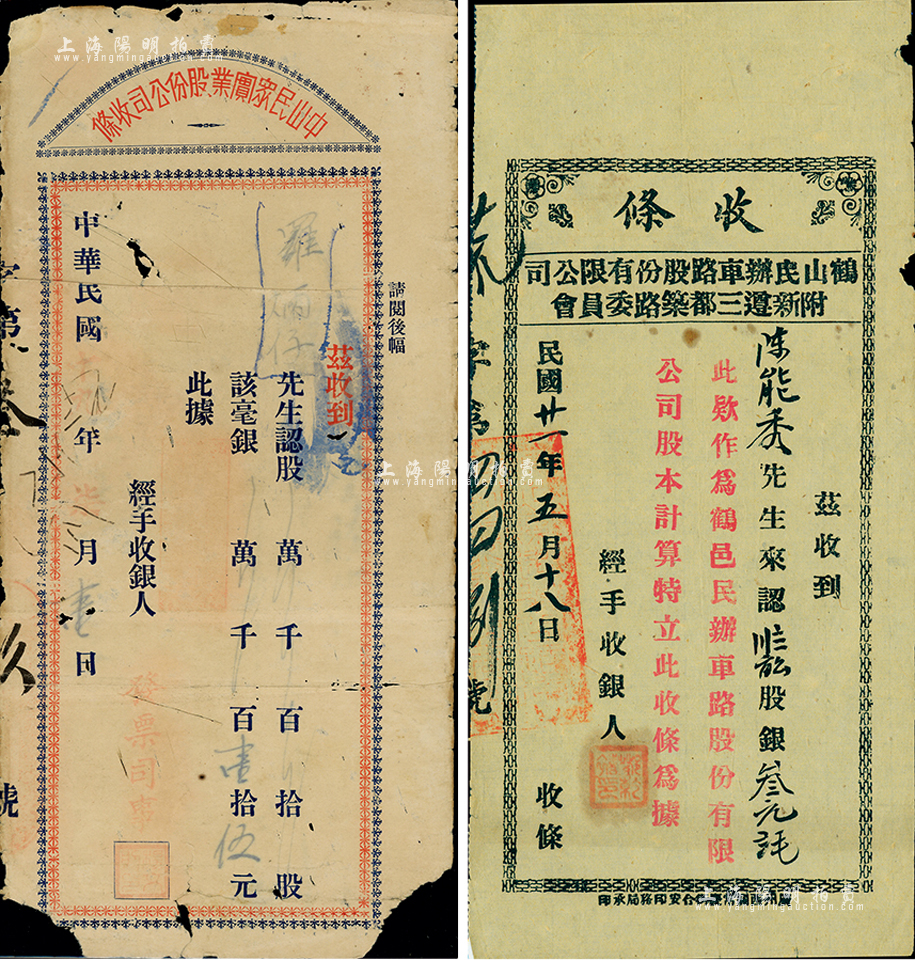 上海陽明拍賣
www.yangmingauction.com
中山民家實業股份公司收條
請閱後幅
茲收到
羅
先生認股 萬 千 百 拾 股
該毫銀 萬 千 百壹拾伍元
此據
經手收銀人
發票司事
中華民國 年 月壹日
字第
號
收條
鶴山民辦車路股份有限公司
附新遵三都築路委員會
茲收到
陳能秀先生來認 股銀叁元
此欵作為鶴邑民辦車路股份有限
公司股本計算特立此收條為據
經手收銀人 收條
民國廿一年五月十八日
字第 號
安印務局承印
上海陽明拍賣
www.yangmingauction.com
上海陽明拍賣
www.yangmingauction.com